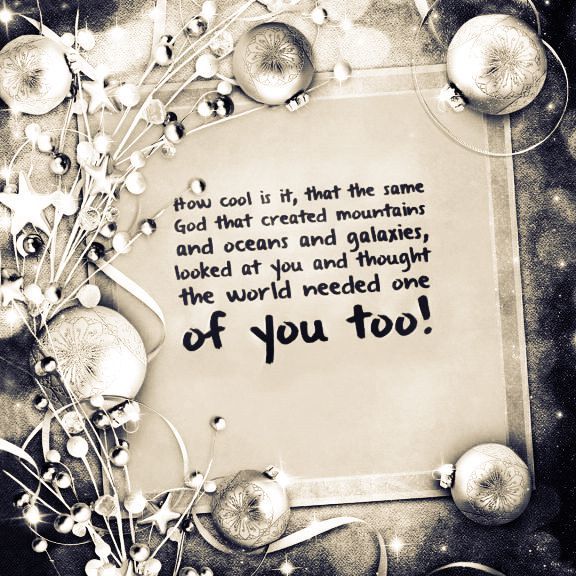 How cool is it, that the same
God that created mountains
and oceans and galaxies,
looked at you and thought
the world needed one
of you too!